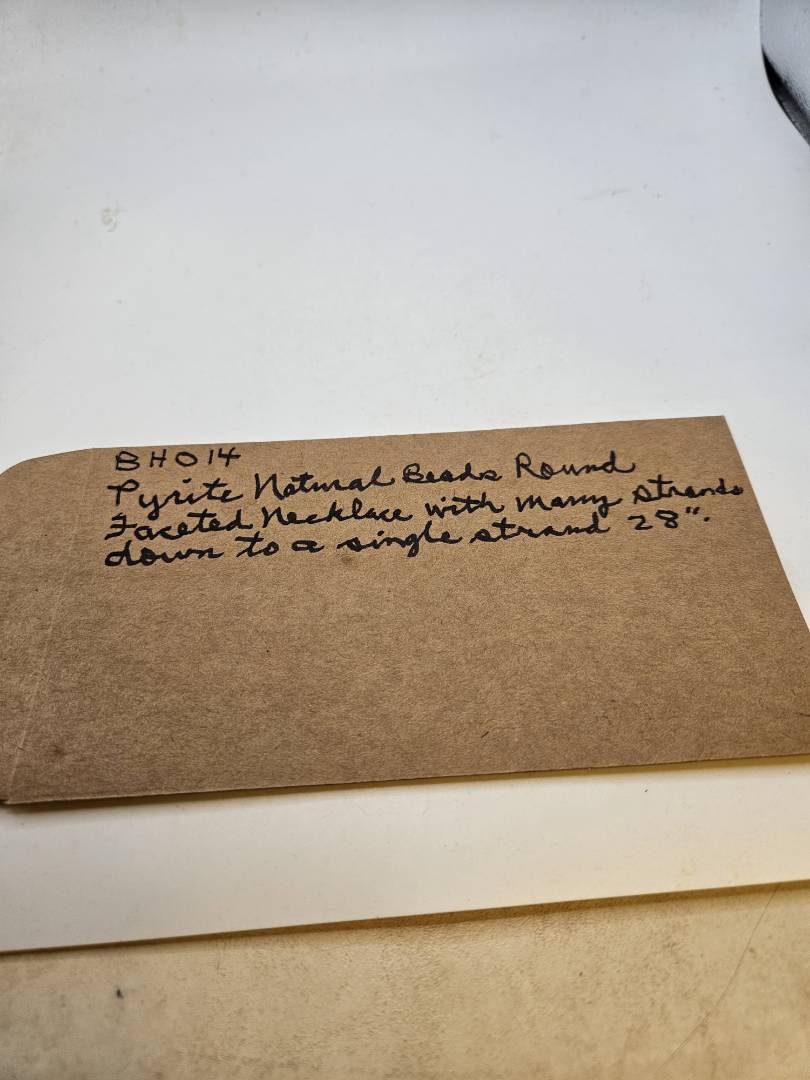 BH014
Pyrite Natural Beads Round
Faceted Necklace with many strands
down to a single strand 28".